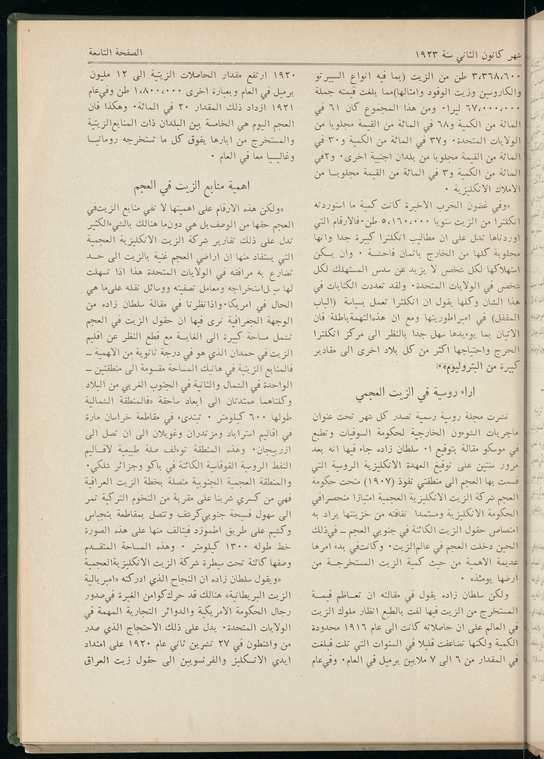 شهر كانون الثاني سنة ١٩٢٣
الصفحة التاسعة
٣،٣٦٨،٦٠٠ طن من الزيت (بما فيه انواع السبيرتو
والكاروسين وزيت الوقود وامثالها) مما بلغت قيمته جملة
٦٧،٠٠٠،٠٠٠ ليرا٠ ومن هذا المجموع كان ٦١ في
المائة من الكمية و٦٨ في المائة من القيمة مجلوبا من
الولايات المتحدة٠ و٣٧ في المائة من الكمية و٣٠ في
المائة من القيمة مجلوبا من بلدان اجنبية اخرى٠ و٢في
المائة من الكمية و٣ في المائة من القيمة مجلوبــا من
الاملاك الانكليزية ٠
«وفي غضون الحرب الاخيرة كانت كمية ما استوردته
انكلترا من الزيت سنويا ٥،١٦٠،٠٠٠ طن٠ فالارقام التي
اوردناها تدل على ان مطاليب انكلترا كبيرة جدا وانها
مجلوبة كلها من الخارج باثمان فاحشــة ٠ وان يكن
استهلاكها لكل شخص لا يزيد عن سدس المستهلك لكل
شخص في الولايات المتحدة٠ ولقد تعددت الكتابات في
هذا الشان وكلها يقول ان انكلترا تعمل بسياسة (الباب
المقفل) في امبراطوريتها ومع ان هذه التهمة باطلة فان
الاتيان بما يوءيدها سهل جدا بالنظر الى مركز انكلترا
الحرج واحتياجها اكثر من كل بلاد اخرى الى مقادير
كبيرة من البتروليوم»٠
اراء روسية في الزيت العجمي
نشرت مجلة روسية رسمية تصدر كل شهر تحت عنوان
ماجريات الشوءون الخارجية لحكومة السوفيات وتطبع
في موسكو مقالة بتوقيع ا٠ سلطان زاده جاء فيها انه بعد
مرور سنتين على توقيع العهدة الانكليزية الروسية التي
قسمت بها العجم الى منطقتي نفوذ (١٩٠٧) منحت حكومة
العجم شركة الزيت الانكليزية العجمية امتيازا منحصرا في
الحكومة الانكليزية ومستمدا نفاقته من خزينتها يراد به
امتصاص حقول الزيت الكائنة في جنوبي العجم ــ في ذلك
الحين دخلت العجم في عالم الزيت٠ وكانت في بدء امرها
عديمة الاهمية من حيث كمية الزيت المستخرجـة من
ارضها يومئذ٠
ولكن سلطان زاده يقول في مقالته ان تعـاظم قيمـة
المستخرج من الزيت فيها لفت بالطبع انظار ملوك الزيت
في العالم على ان حاصلاته كانت الى عام ١٩١٦ محدودة
الكمية ولكنها تضاعفت قليلا في السنوات التي تلت فبلغت
في المقدار من ٦ الى ٧ ملايين برميل في العام٠ وفي عام
١٩٢٠ ارتفع مقدار الحاصلات الزيتية الى ١٢ مليون
برميل في العام وبعبارة اخرى ١،٨٠٠،٠٠٠ طن وفي عام
١٩٢١ ازداد ذلك المقدار ٢٠ في المائة٠ وهكذا فان
العجم اليوم هي الخامسة بين البلدان ذات المنابع الزيتية
والمستخرج من ابارها يفوق كل ما تستخرجه رومانيــا
وغاليسيا معا في العام ٠
اهمية منابع الزيت في العجم
«ولكن هذه الارقام على اهميتها لا تفي منابع الزيت في
العجم حقها من الوصف بل هي دون ما هنالك بالشيء الكثير
تدل على ذلك تقارير شركة الزيت الانكليزية العجمية
التي يستفاد منها ان اراضي العجم غنية بالزيت الى حــد
تضارع به مرافقه في الولايات المتحدة هذا اذا تسهلت
لها سبل استخراجه ومعامل تصفيته ووسائل نقله على ما هي
الحال في امريكا٠ واذا نظرنا في مقالة سلطان زاده من
الوجهة الجغرافية نرى فيها ان حقول الزيت في العجم
تشمل مساحة كبيرة الى الغايــة مع قطع النظر عن اقليم
الزيت في حمدان الذي هو في درجة ثانوية من الاهمية ــ
فالمنابع الزيتية في هاتيك المساحة مقسومة الى منطقتين ــ
الواحدة في الشمال والثانية في الجنوب الغربي من البلاد
وكلتاهما ممتدتان الى ابعاد ساحقة ٠فالمنطقة الشمالية
طولها ٦٠٠ كيلومتر ٠ تبتدىء في مقاطعة خراسان مارة
في اقاليم استراباد ومزندران وغويلان الى ان تصل الى
ازربيجان٠ وهذه المنطقة توءلف صلة طبيعية لاقــاليم
النفط الروسية القوقاسية الكائنة في باكو وجزائر شلكي٠
والمنطقة العجمية الجنوبية متصلة بخطة الزيت العراقية
فهي من كسري شرينا على مقربة من التخوم التركية تمر
الى سهول فسيحة جنوبي كرتف وتتصل بمقاطعة بنجباس
وكشيم على طريق اطموزد فيتالف منها على هذه الصورة
خط طوله ١٣٠٠ كيلومتر ٠ وهذه المساحة المتقــدم
وصفها كائنة تحت سيطرة شركة الزيت الانكليزية العجمية
«ويقول سلطان زاده ان النجاح الذي ادركته «امبريالية
الزيت البريطانية» هنالك قد حرك كوامن الغيرة في صدور
رجال الحكومة الامريكية والدوائر التجارية المهمة في
الولايات المتحدة٠ يدل على ذلك الاحتجاج الذي صدر
من واشنطون في ٢٧ تشرين ثاني عام ١٩٢٠ على امتداد
ايدي الانكليز والفرنسويين الى حقول زيت العراق